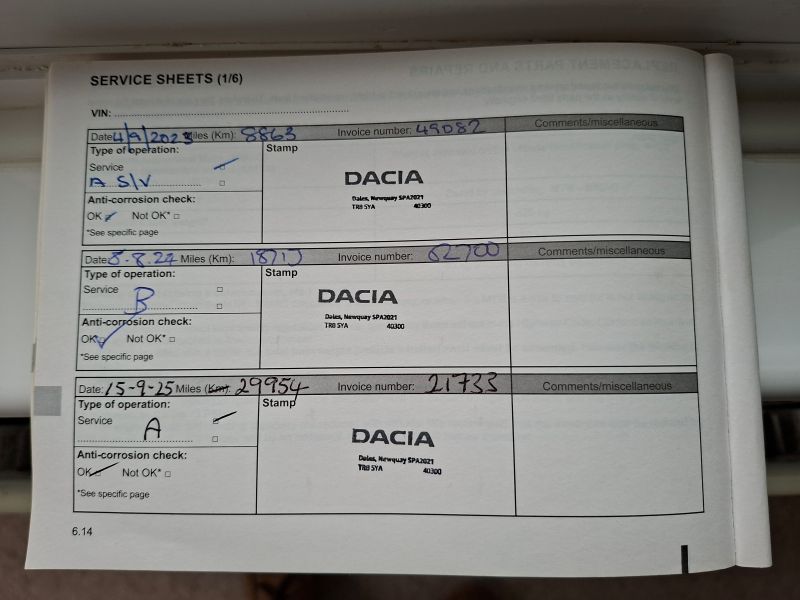 SERVICE SHEETS (1/6)
VIN:
Date 4/9/2023 Miles (Km): 8863 Invoice number: 49082 Comments/miscellaneous
Type of operation: Stamp
Service
A S/V
DACIA
Dales, Newquay SPA2021
TR8 5YA 40300
Anti-corrosion check:
OK Not OK*
*See specific page
Date 8.8.24 Miles (Km): Invoice number: 62700 Comments/miscellaneous
Type of operation: Stamp
Service
B
DACIA
Dales, Newquay SPA2021
TR8 5YA 40300
Anti-corrosion check:
OK Not OK*
*See specific page
Date: 15-9-25 Miles (Km): 29954 Invoice number: 21733 Comments/miscellaneous
Type of operation: Stamp
Service
A
DACIA
Dales, Newquay SPA2021
TR8 5YA 40300
Anti-corrosion check:
OK Not OK*
*See specific page
6.14